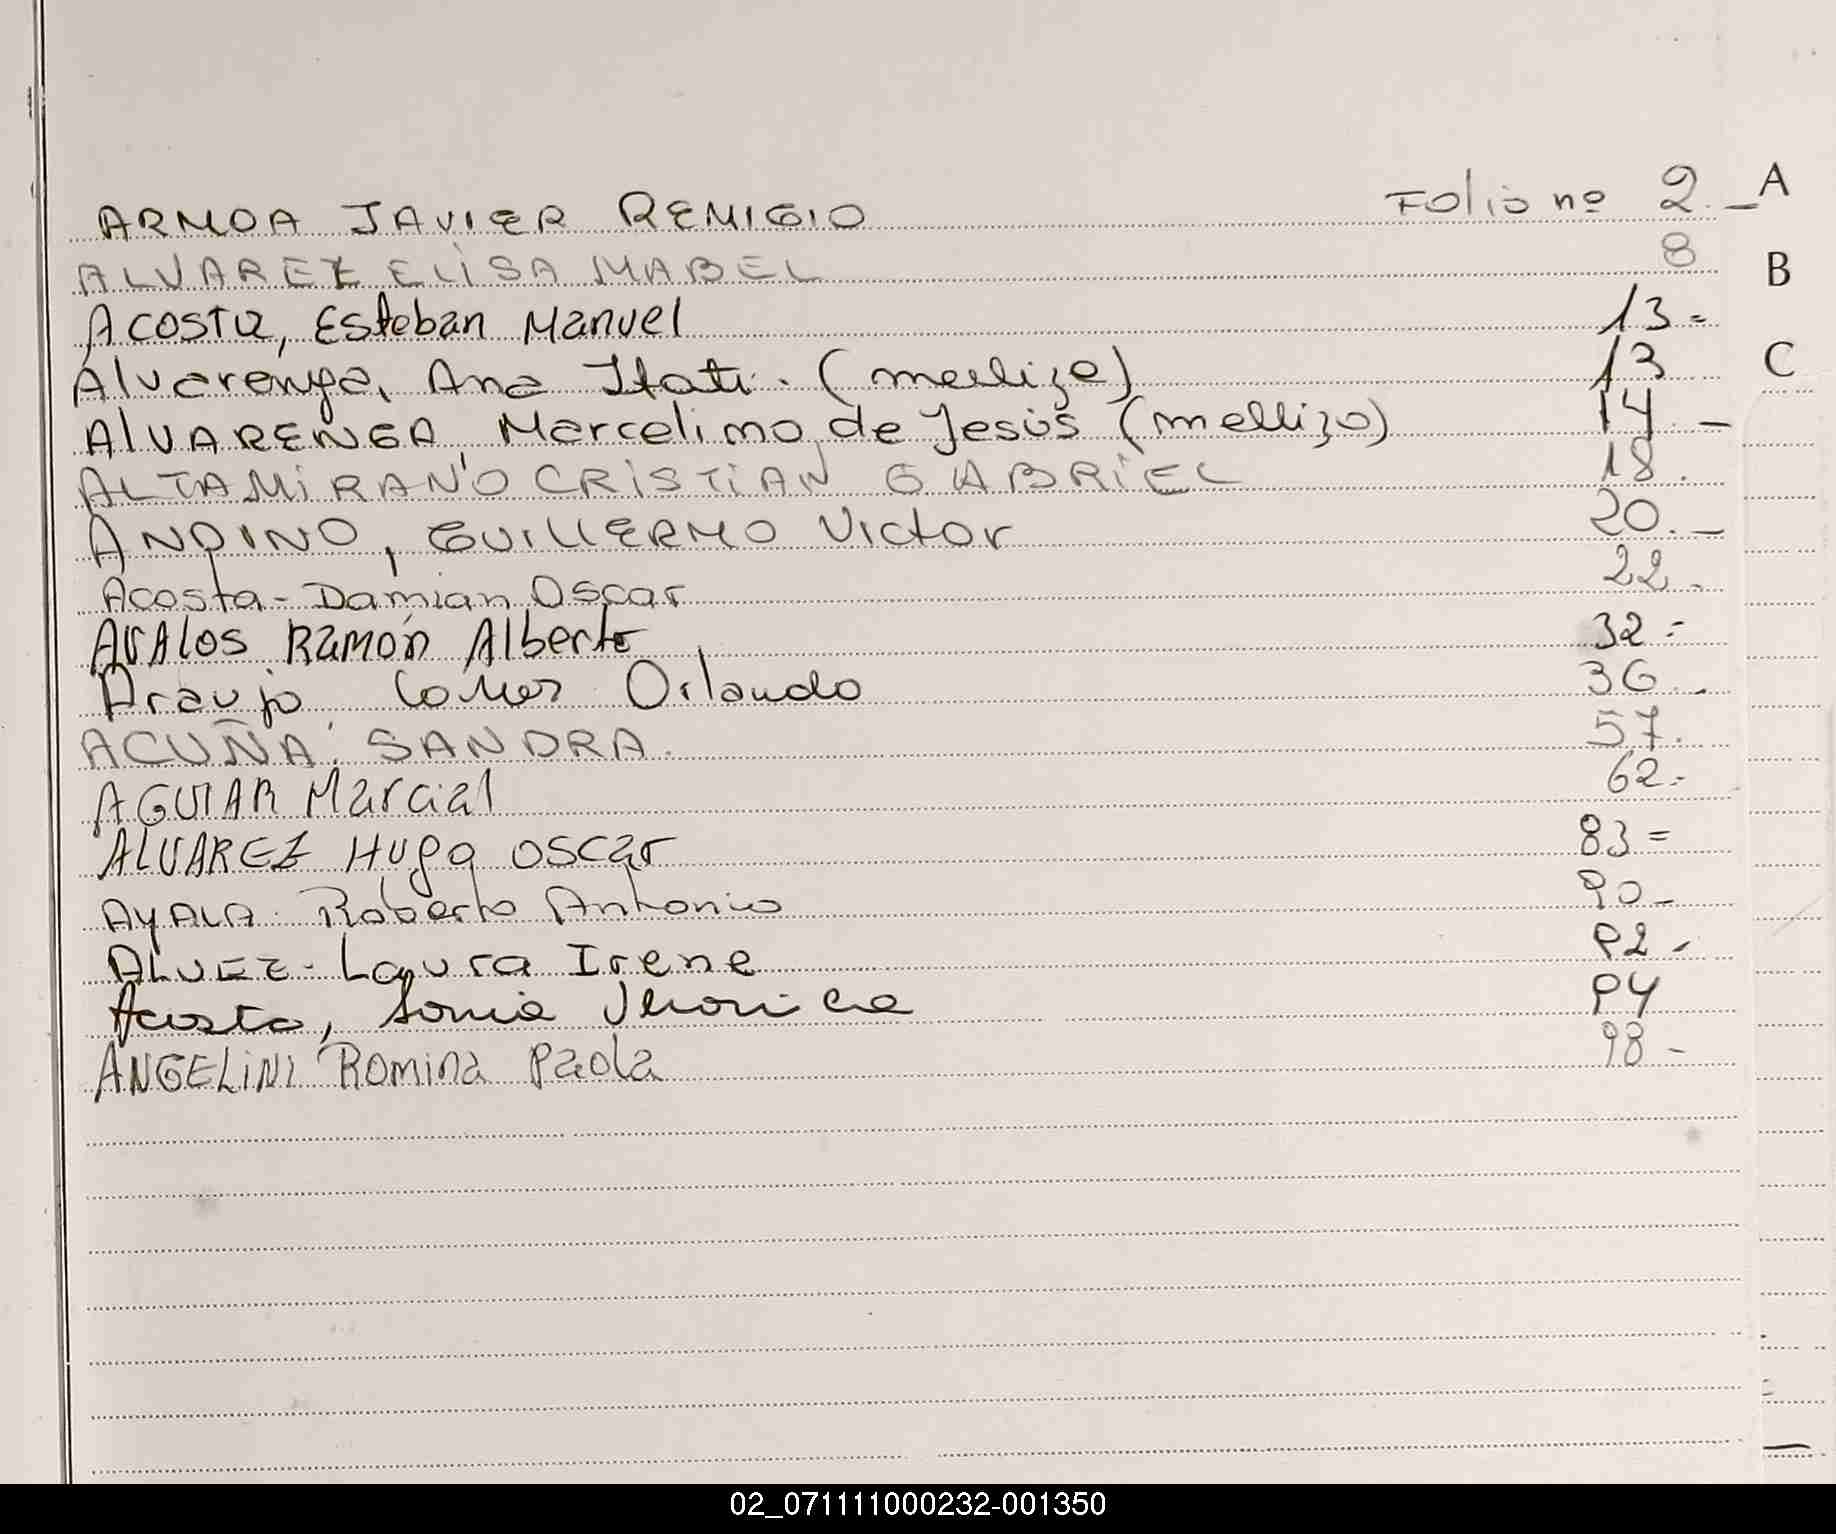 ARMOA JAVIER REMIGIO Folio nº 2.- A
ALVAREZ ELISA MABEL 8 B
Acosta, Esteban Manuel 13=
Alvarenga, Ana Itati. (melliza) 13 C
AlVARENGA Marcelimo de Jesús (mellizo) 14 -
ALTAMIRANO CRISTIAN GABRIEL 18.
ANDINO, GUILLERMO Victor 20.-
Acosta - Damian Oscar 22.-
AVAlos Ramón Alberto 32=
Araujo Orlando 36.
ACUÑA, SANDRA. 57.
AGUIAR Marcial 62.-
ALVAREZ Hugo OSCar 83=
AYALA Roberto Antonio 90-
ALVEZ - Laura Irene 92-
Acosta, Sonia Veronica 94
ANGELINI Romina Paola 98-
02_071111000232-001350